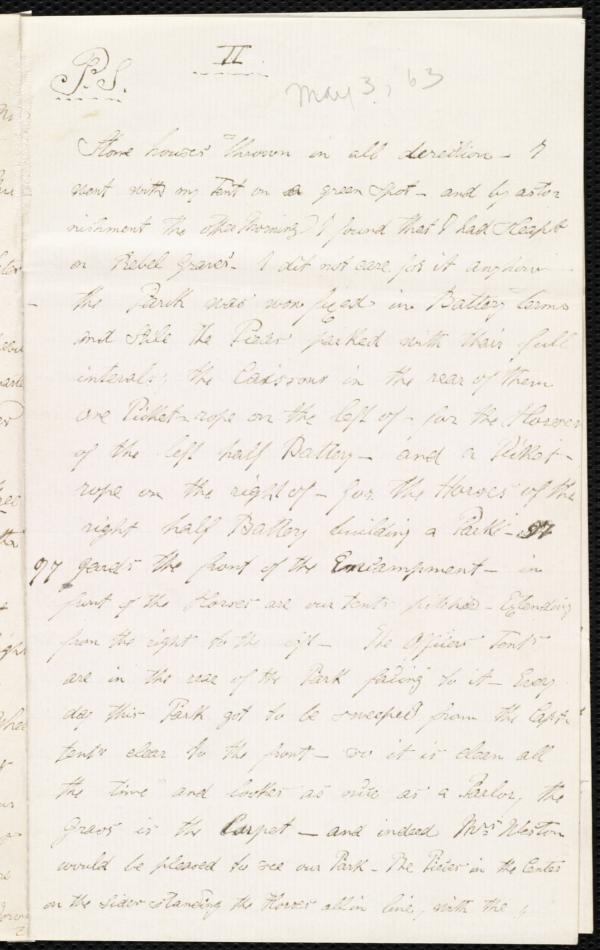 P.S. II
May 3, 63
Stone houses thrown in all derection - I
went with my Tent on a green spot - and by aston
nishment the other Morning I found that I had sleapt
on Rebel Graves - I dit not care for it any
the Parck was now fixed in Battery
and Stile the Pieces parked with their full
intervals; the Caissons in the rear of them
one Picket-rope on the left of - for the Horses
of the left half Battery - and a Picket-
rope on the right of - for the Horses of the
right half Battery building a Park -
97 yards the front of the Encampment - in
front of the Horses are our tents pitched - Extending
from the right to the left - The Officers Tents
are in the rear of the Park facing to it - Every
day this Park got to be sweeped from the Capt
tents clear to the front - so it is clean all
the time and lookes as nice as a Parlor, the
Grass is the Carpet - and indeed Mrs Weston
would be pleased to see our Park - The Pieces in the Center
on the sides standing the Horses all in line, with the